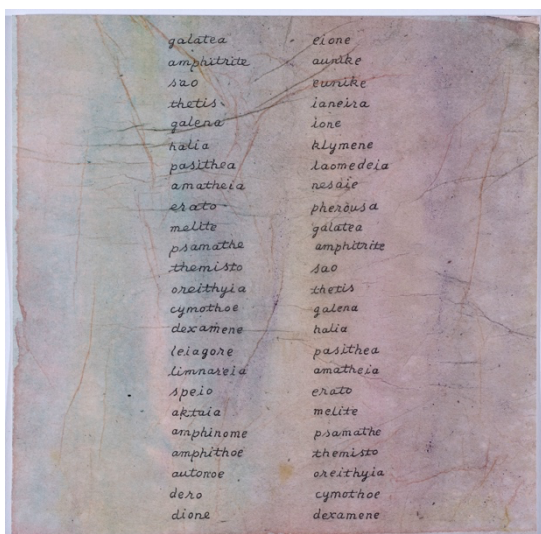 galatea
amphitrite
sao
thetis
galena
halia
pasithea
amatheia
erato
melite
psamathe
themisto
oreithyia
cymothoe
dexamene
leiagore
limnareia
speio
aktaia
amphinome
amphithoe
autonoe
dero
dione
eione
aunike
eunike
ianeira
ione
klymene
laomedeia
nesaie
pherousa
galatea
amphitrite
sao
thetis
galena
halia
pasithea
amatheia
erato
melite
psamathe
themisto
oreithyia
cymothoe
dexamene